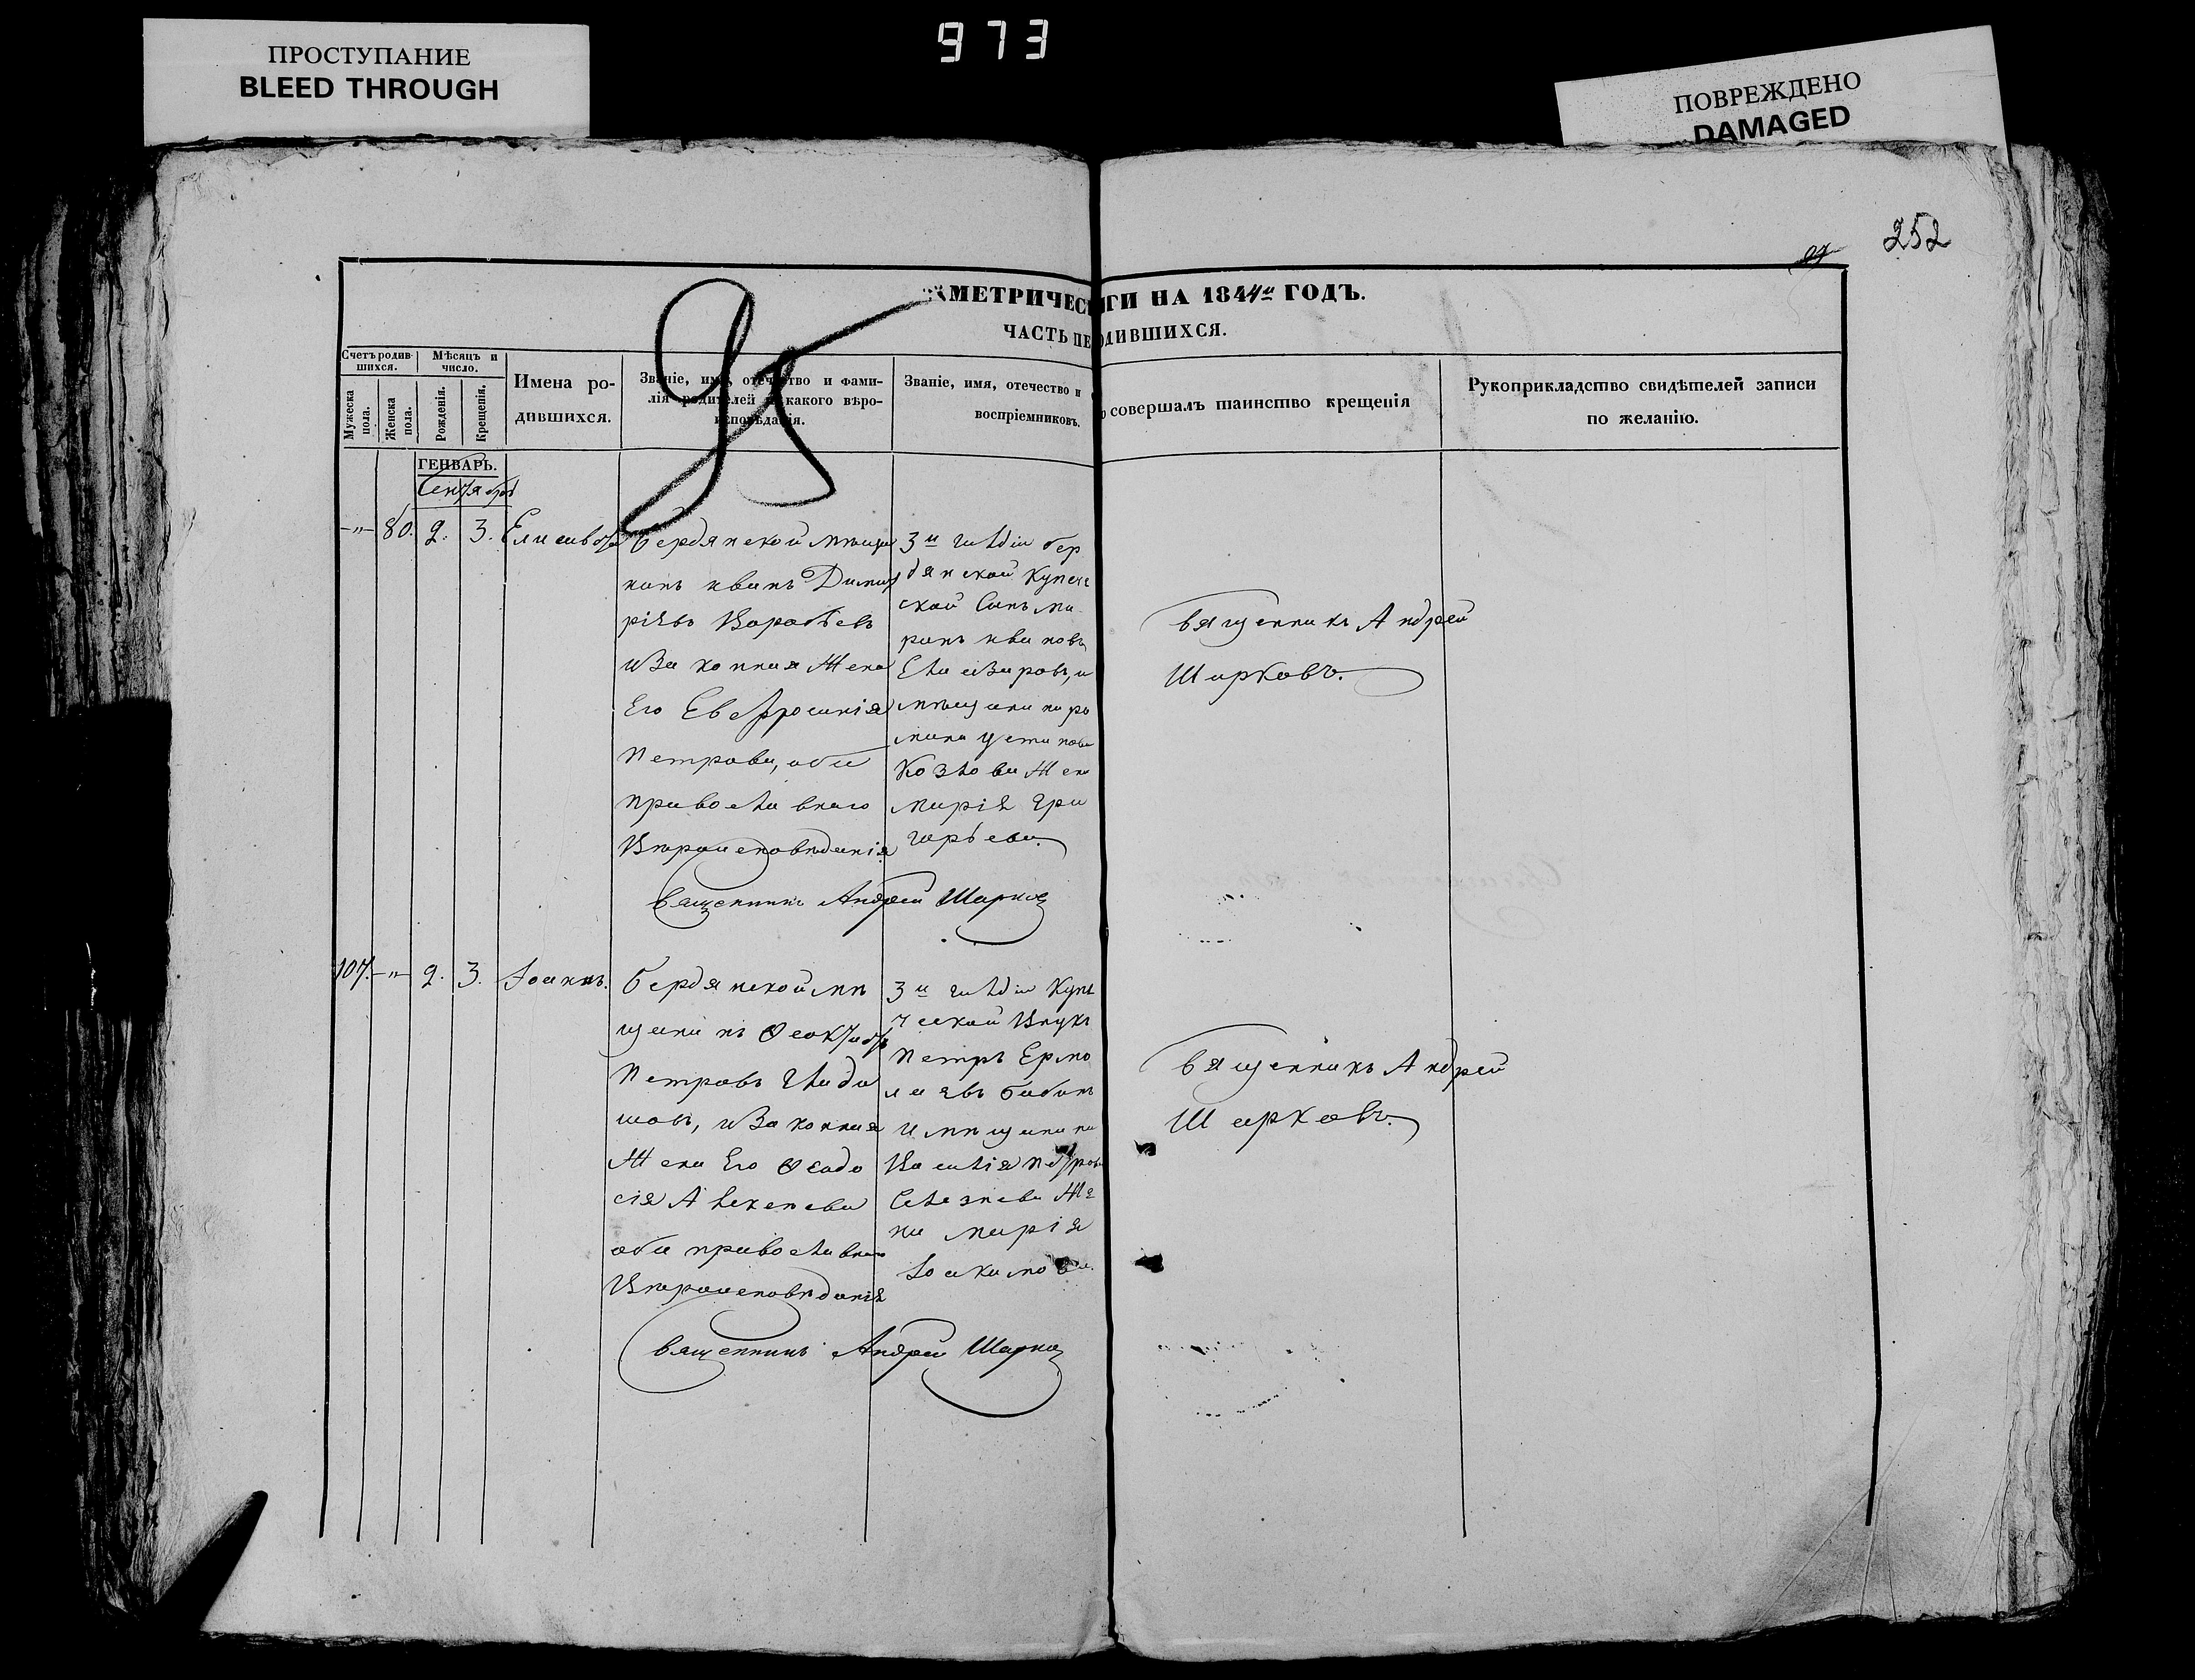 ПРОСТУПАНИЕ
BLEED THROUGH
973
ПОВРЕЖДЕНО
DAMAGED
252
МЕТРИЧЕС ГИ НА 1844й ГОДЪ.
ЧАСТЬ ПЕ ОДИВШИХСЯ.
Счетъ родив-
шихся.
Мужеска
пола.
Женска
пола.
Мѣсяцъ и
число.
Рожденія.
Крещенія.
Имена ро-
дившихся.
Званіе, имя, отечество и фами-
лія родителей и какого вѣро-
исповѣданія.
Званіе, имя, отечество и
воспріемниковъ.
о совершалъ таинство крещенія
Рукоприкладство свидѣтелей записи
по желанію.
95
ГЕНВАРЬ.
Сентябрь
-"- 80. 2. 3. Елисавета
Бердянской мѣща
нинъ Иванъ Димит
ріевъ Воробьевъ
и Законная Жена
Его Евфросинія
Петрова, оба
православнаго
Вѣроисповѣданія
3й гилдіи бер
дянской Купече
ской Сынъ Ми
ронъ Ивановъ
Елиазаровъ, и
мѣщанина
Устинова
Козлова Жена
Марія Гри
горьева.
Священникъ Андрей
Шарковъ.
Священникъ Андрей Шарков
107. -"- 2. 3. Іоаннъ.
Бердянской мѣ
щанинъ Феоктистъ
Петровъ Глады
шовъ, и Законная
Жена Его Феодо
сія Алексеева
оба православнаго
Вѣроисповѣданія
3й гилдіи Купе
ческой Внукъ
Петръ Ермо
лаевъ Бабинъ
и мѣщанина
Василія Петрова
Селезнева Же
на Марія
Іоакимова.
Священникъ Андрей
Шарковъ.
Священникъ Андрей Шарков